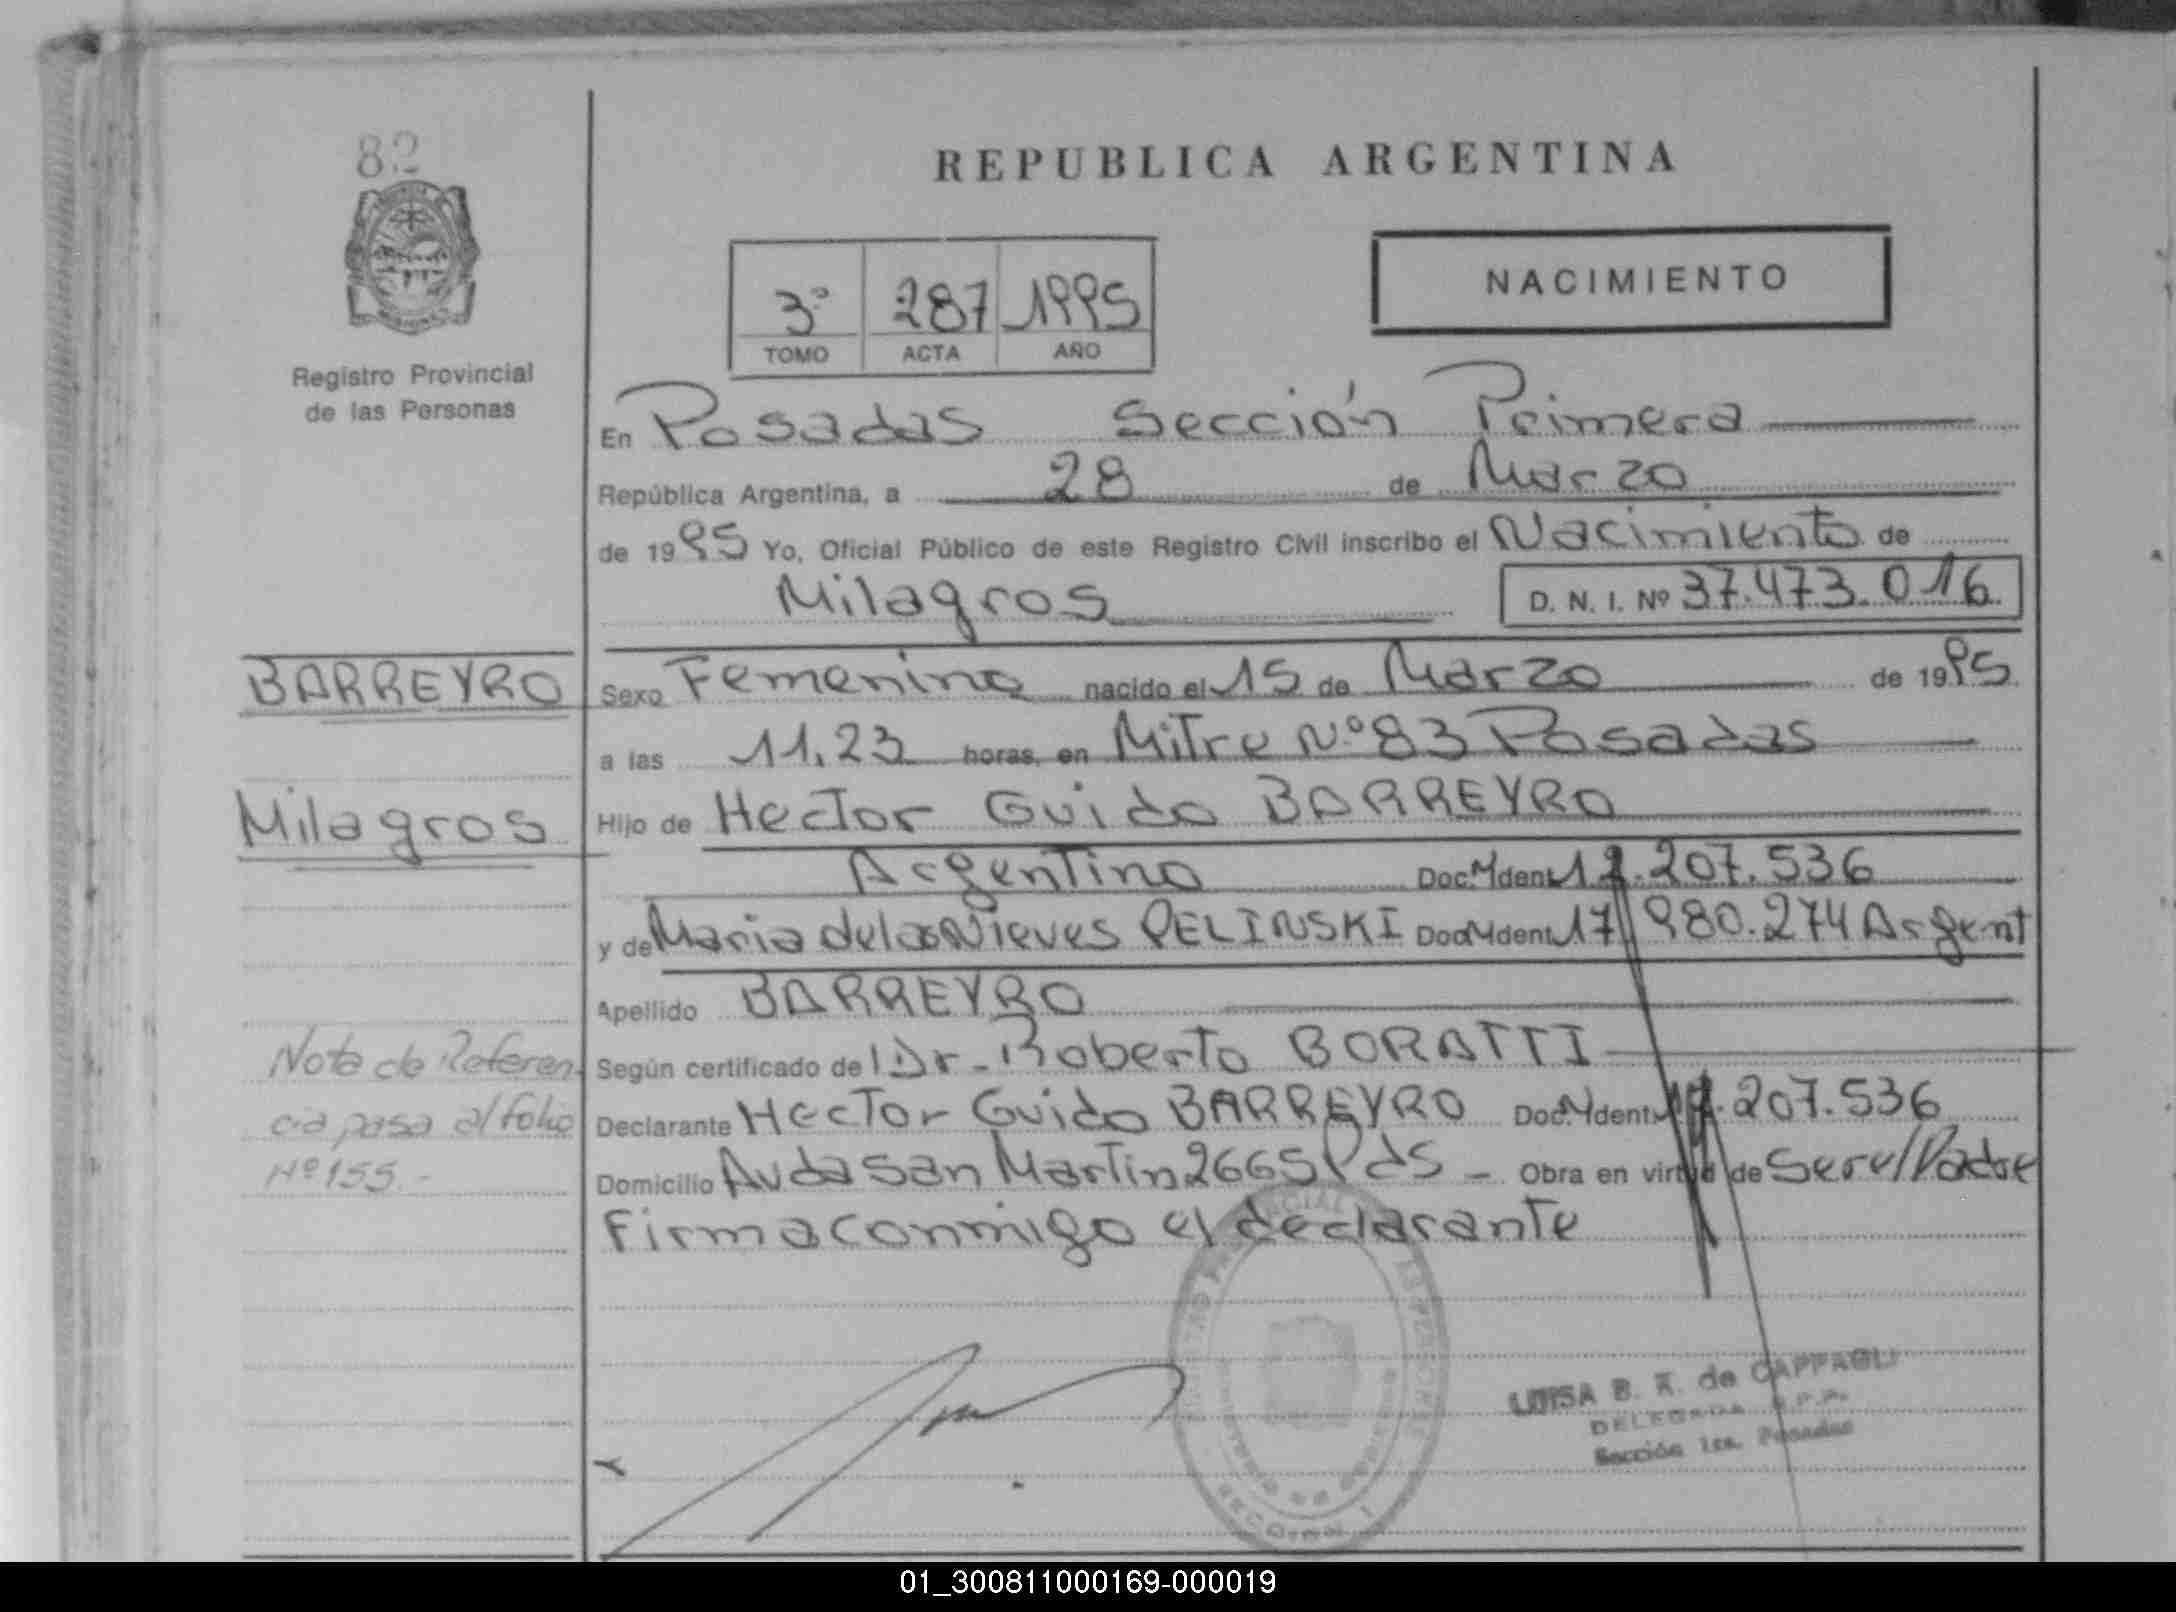 82
REPUBLICA ARGENTINA
NACIMIENTO
3º 287 1995
TOMO ACTA AÑO
Registro Provincial
de las Personas
En Posadas Sección Primera
República Argentina, a 28 de Marzo
de 1995 Yo, Oficial Público de este Registro Civil inscribo el Nacimiento de
Milagros D. N. I. Nº 37.473.016
BARREYRO
Sexo Femenino nacido el 15 de Marzo de 1995
a las 11,23 horas, en Mitre Nº 83 Posadas
Milagros
Hijo de Hector Guido BARREYRO
Argentino Doc. Ident .207.536
y de Maria de las Nieves PELINSKI Doc. Ident 17 980.274 Argent
Apellido BARREYRO
Según certificado del Dr. Roberto BORATTI
Declarante Hector Guido BARREYRO Doc. Ident .207.536
Domicilio Avda San Martin 2665 Pds - Obra en virtud de Ser el Padre
Firma conmigo el declarante
Nota de Referen
cia pasa al folio
Nº 155.-
LUISA B. K. de CAPPAGLI
DELEGADA R.P.P.
Sección 1ra. Posadas
01_300811000169-000019